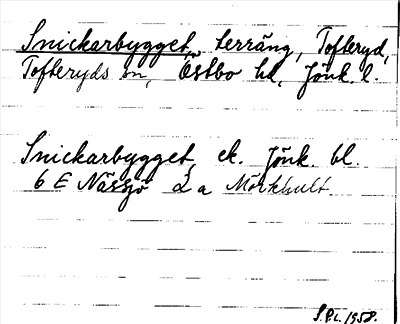 Snickarbygget, terräng, Tofteryd,
Tofteryds sn, Östbo hd, Jönk. l.
Snickarbygget, ek. Jönk. bl.
6 E Nässjö 2 a Mörkhult
1958.